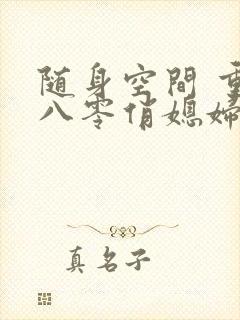 随身空間 重
八零俏媳婦
真名子